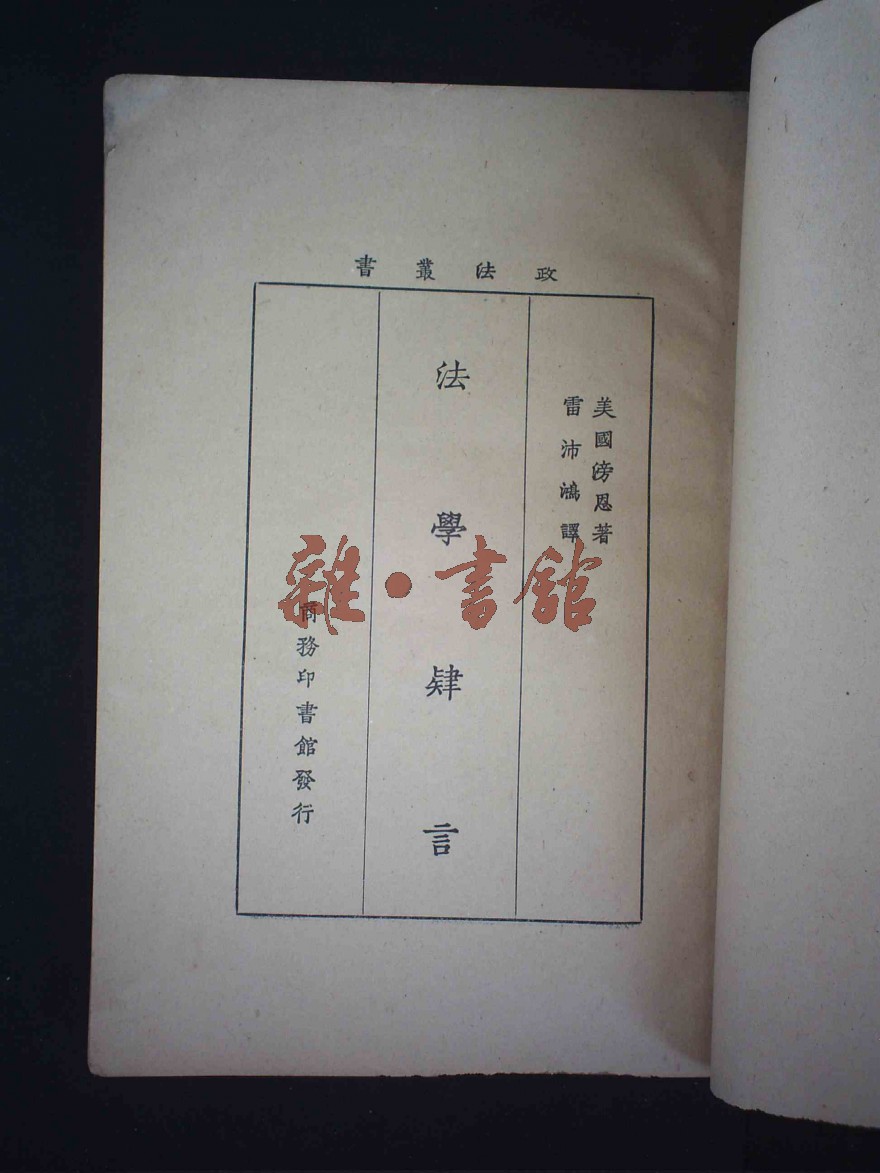 政法叢書
美國滂恩著
雷沛鴻譯
法學肄言
商務印書館發行
雜·書館